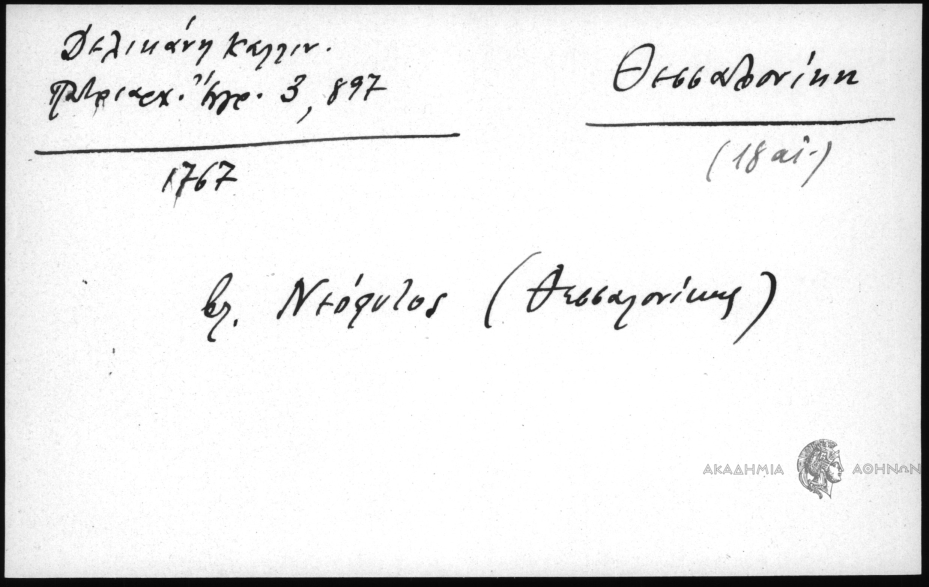 Δελικάνη Καλλιν.
Πατριαρχ. Ἔγγρ. 3, 897
1767
Θεσσαλονίκη
(18 αἰ.)
βλ. Νεόφυτος (Θεσσαλονίκης)
ΑΚΑΔΗΜΙΑ ΑΘΗΝΩΝ